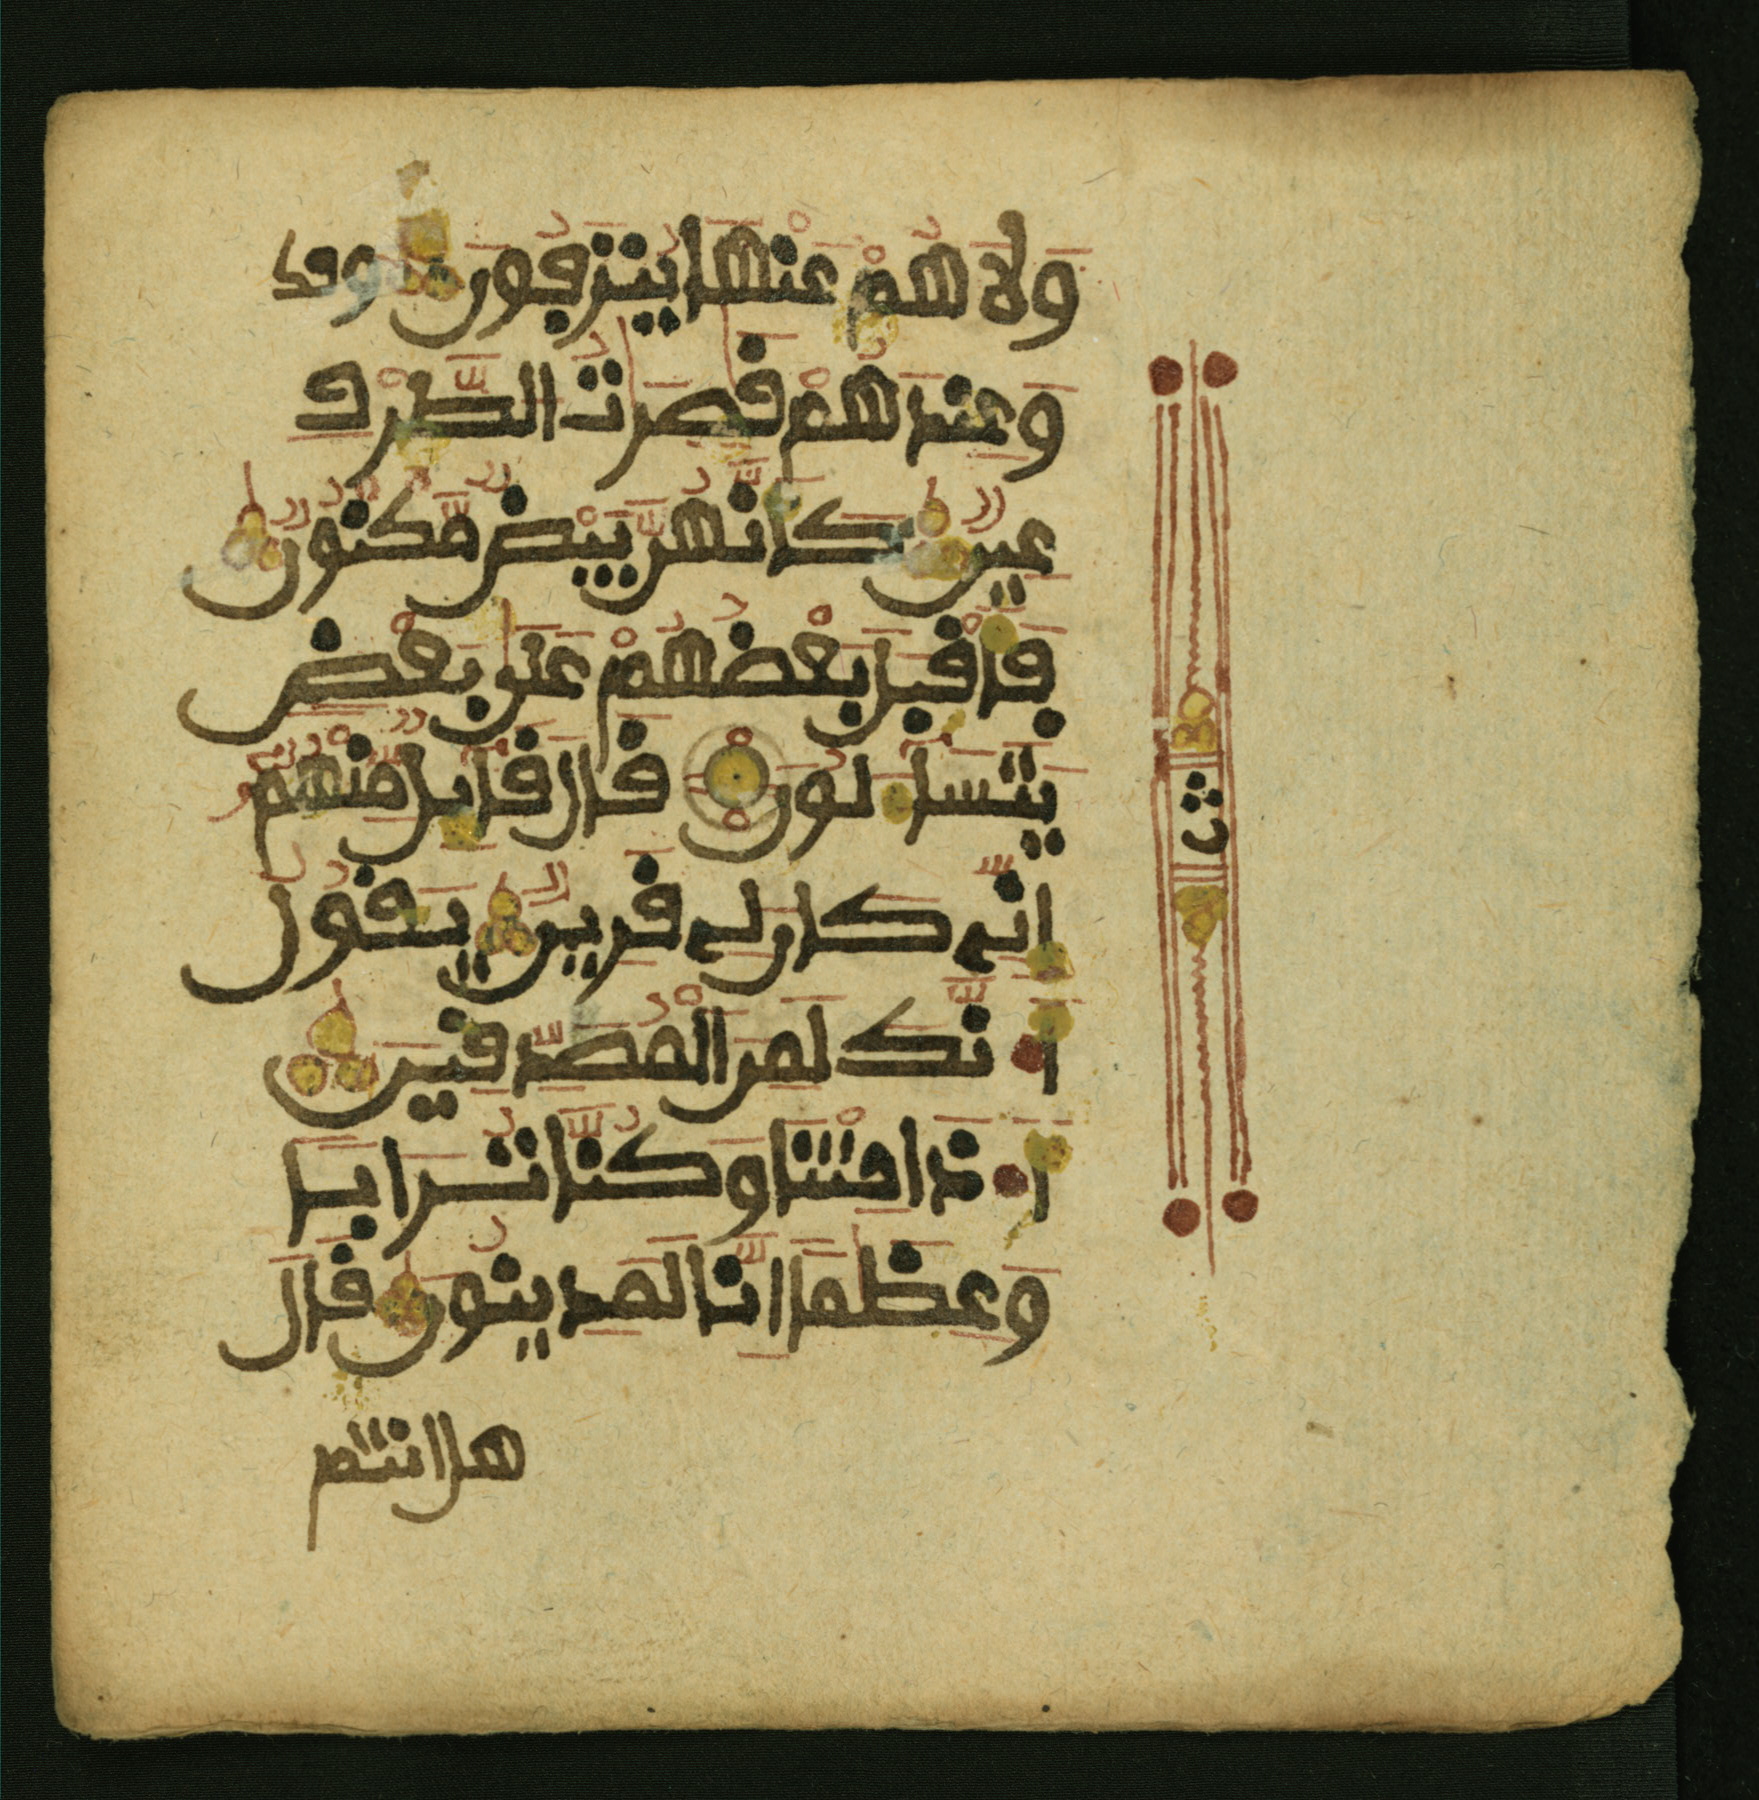 وَلَا هُمْ عَنْهَا يُنزَفُونَ
وَعِندَهُمْ قَٰصِرَٰتُ الطَّرْفِ
عِينٌ كَأَنَّهُنَّ بَيْضٌ مَّكْنُونٌ
فَأَقْبَلَ بَعْضُهُمْ عَلَىٰ بَعْضٍ
يَتَسَآءَلُونَ قَالَ قَآئِلٌ مِّنْهُمُ
إِنِّے كَانَ لِے قَرِينٌ يَقُولُ
أَ۟نَّكَ لَمِنَ الْمُصَدِّقِينَ
أَ۟ذَا مِتْنَا وَكُنَّا تُرَابا
وَعِظَٰماً إِنَّا لَمَدِينُونَ قَالَ
هل انتم
ث